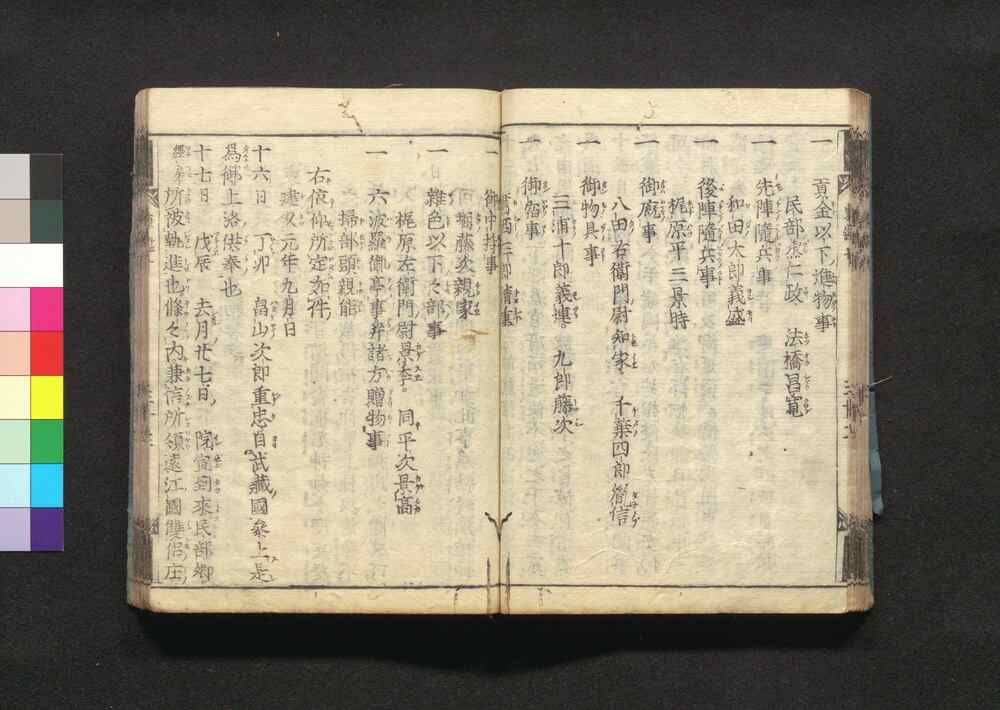 一 貢金以下進物事
民部丞仁政 法橋昌寛
一 先陣隨兵事
和田太郎義盛
一 後陣隨兵事
梶原平三景時
一 御厩事
八田右衛門尉知家 千葉四郎胤信
一 御物具事
三浦十郎義連 九郎藤次
一 御宿事
葛西三郎清重
一 御中持事
堀藤次親家
一 雜色以下之部事
梶原左衛門尉景季 同平次景高
一 六波羅御亭事并諸方贈物事
掃部頭親能
右依仰所定如件
建久元年九月日
十六日 丁卯 畠山次郎重忠自武藏國參上是
為御上洛供奉也
十七日 戊辰 去月廿七日 院宣到來民部卿
經房所被執進也條々内兼信所領遠江國雙侶庄